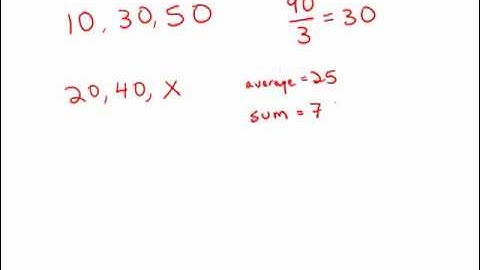 10, 30, 50
90/3 = 30
20, 40, X
average = 25
sum = 7